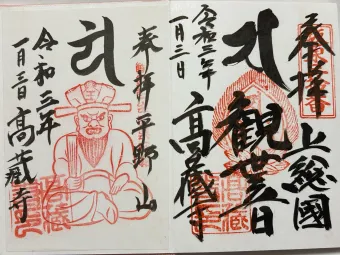 奉拝 上総國
観世音
高藏寺
令和三年
一月三日
奉拝 平野山
高藏寺
令和三年
一月三日